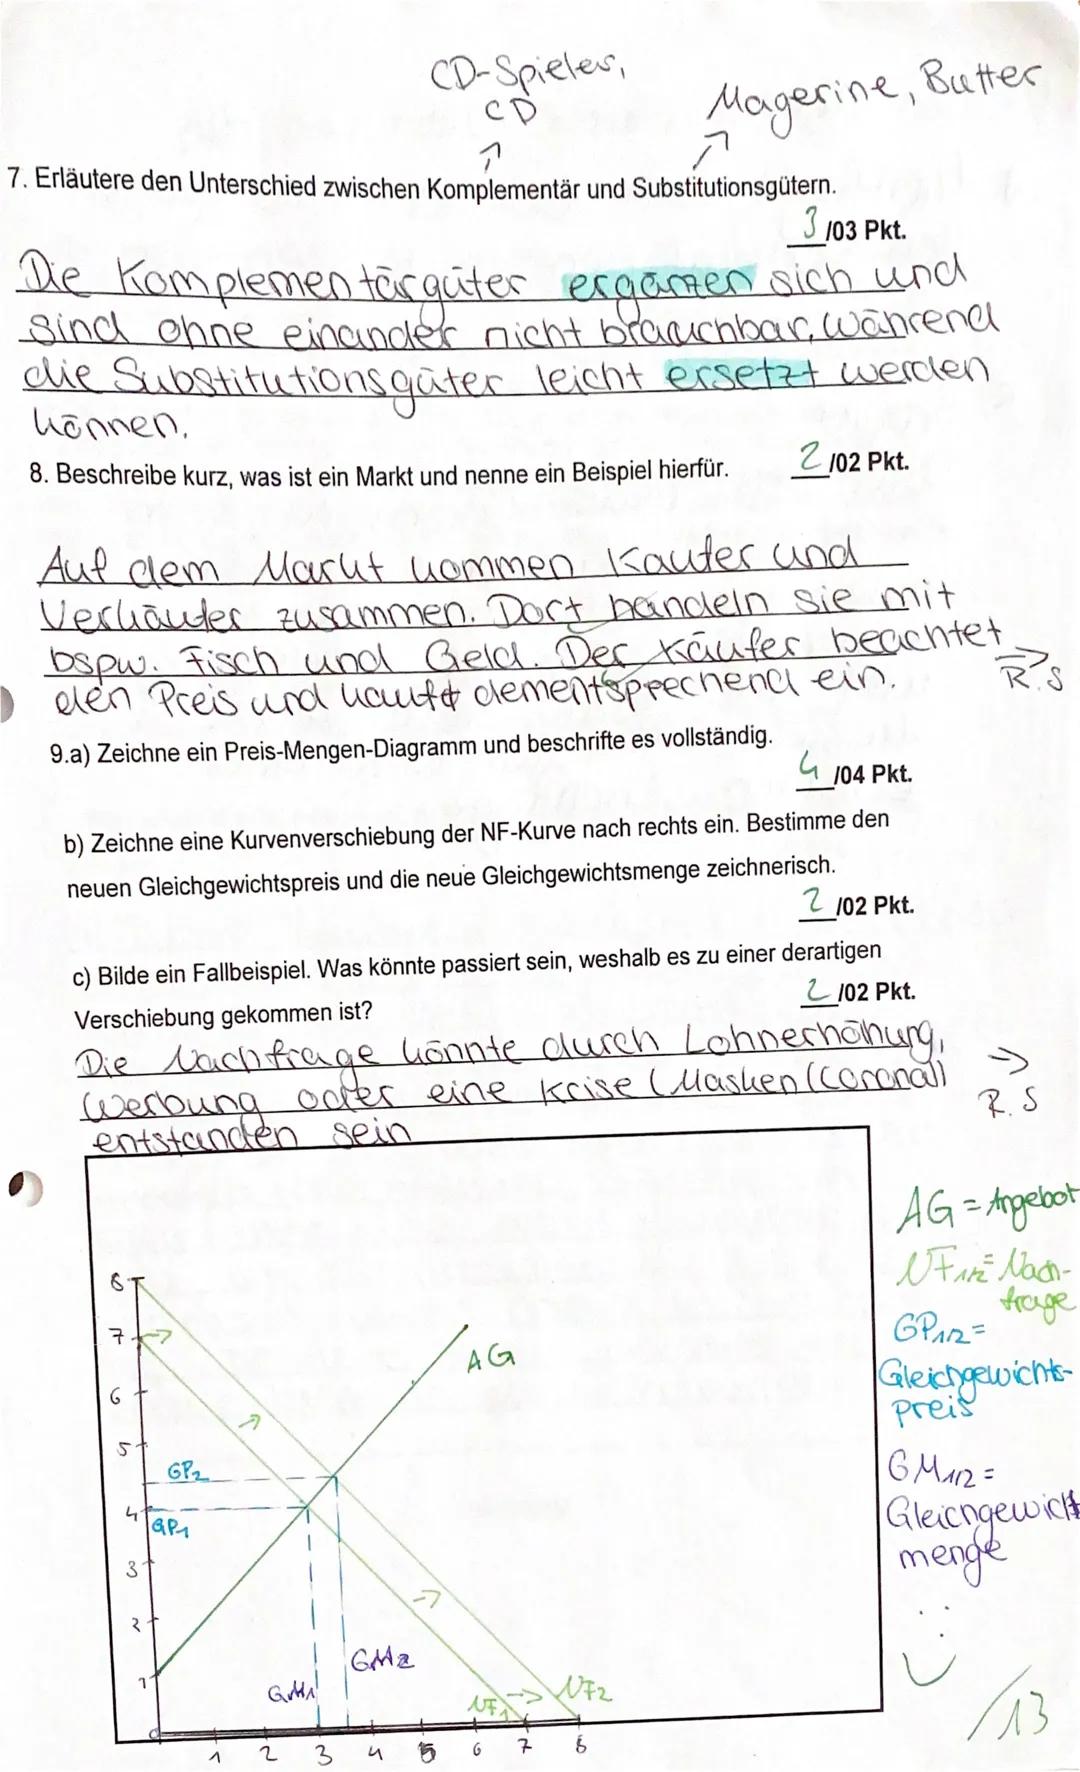 CD-Spieler,
CD
Magerine, Butter
7. Erläutere den Unterschied zwischen Komplementär und Substitutionsgütern.
3 /03 Pkt.
Die Komplementärgüter ergänzen sich und
sind ohne einander nicht brauchbar, während
die Substitutionsgüter leicht ersetzt werden
können.
8. Beschreibe kurz, was ist ein Markt und nenne ein Beispiel hierfür.
2 /02 Pkt.
Auf dem Markt kommen Käufer und
Verkäufer zusammen. Dort handeln sie mit
bspw. Fisch und Geld. Der Käufer beachtet
den Preis und kauft dementsprechend ein.
R.S
9.a) Zeichne ein Preis-Mengen-Diagramm und beschrifte es vollständig.
4 /04 Pkt.
b) Zeichne eine Kurvenverschiebung der NF-Kurve nach rechts ein. Bestimme den
neuen Gleichgewichtspreis und die neue Gleichgewichtsmenge zeichnerisch.
2 /02 Pkt.
c) Bilde ein Fallbeispiel. Was könnte passiert sein, weshalb es zu einer derartigen
Verschiebung gekommen ist?
2 /02 Pkt.
Die Nachfrage könnte durch Lohnerhöhung,
Werbung oder eine Krise (Masken (Corona))
entstanden sein
R.S
AG = Angebot
NF1/2 = Nach-
frage
GP1/2 =
Gleichgewichts-
preis
GM1/2 =
Gleichgewichts
menge
/13
8
7
6
5
4
3
2
1
0
AG
GP2
GP1
GM1
GM2
NF1
NF2
1 2 3 4 5 6 7 8